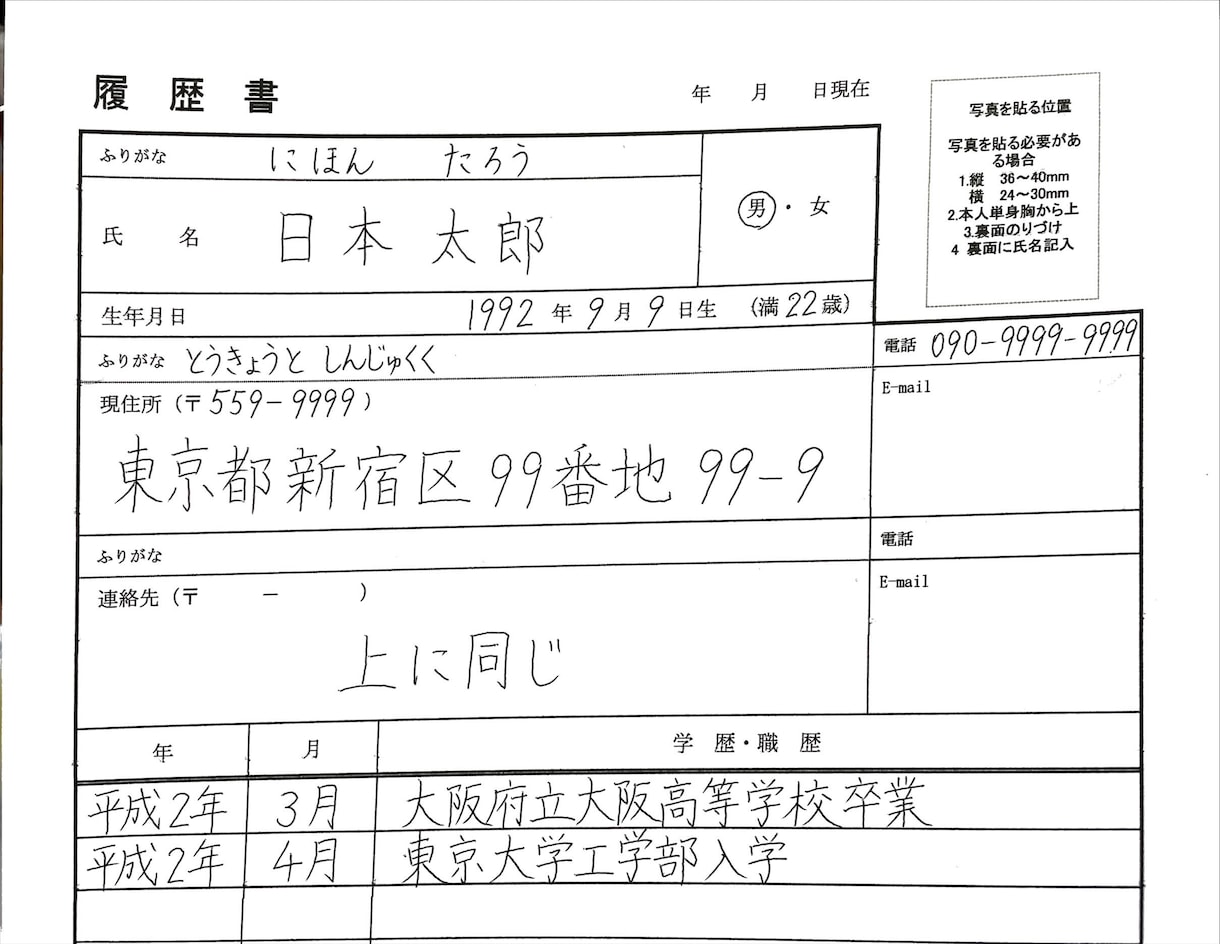 履歴書
年 月 日現在
写真を貼る位置
写真を貼る必要があ
る場合
1.縦 36~40mm
横 24~30mm
2.本人単身胸から上
3.裏面のりづけ
4 裏面に氏名記入
ふりがな にほん たろう
男・女
氏 名 日本 太郎
生年月日 1992年9月9日生 (満22歳)
ふりがな とうきょうと しんじゅくく
電話 090-9999-9999
現住所(〒559-9999)
E-mail
東京都新宿区99番地99-9
ふりがな
電話
連絡先(〒 - )
E-mail
上に同じ
年 月 学 歴・職 歴
平成2年 3月 大阪府立大阪高等学校卒業
平成2年 4月 東京大学工学部入学